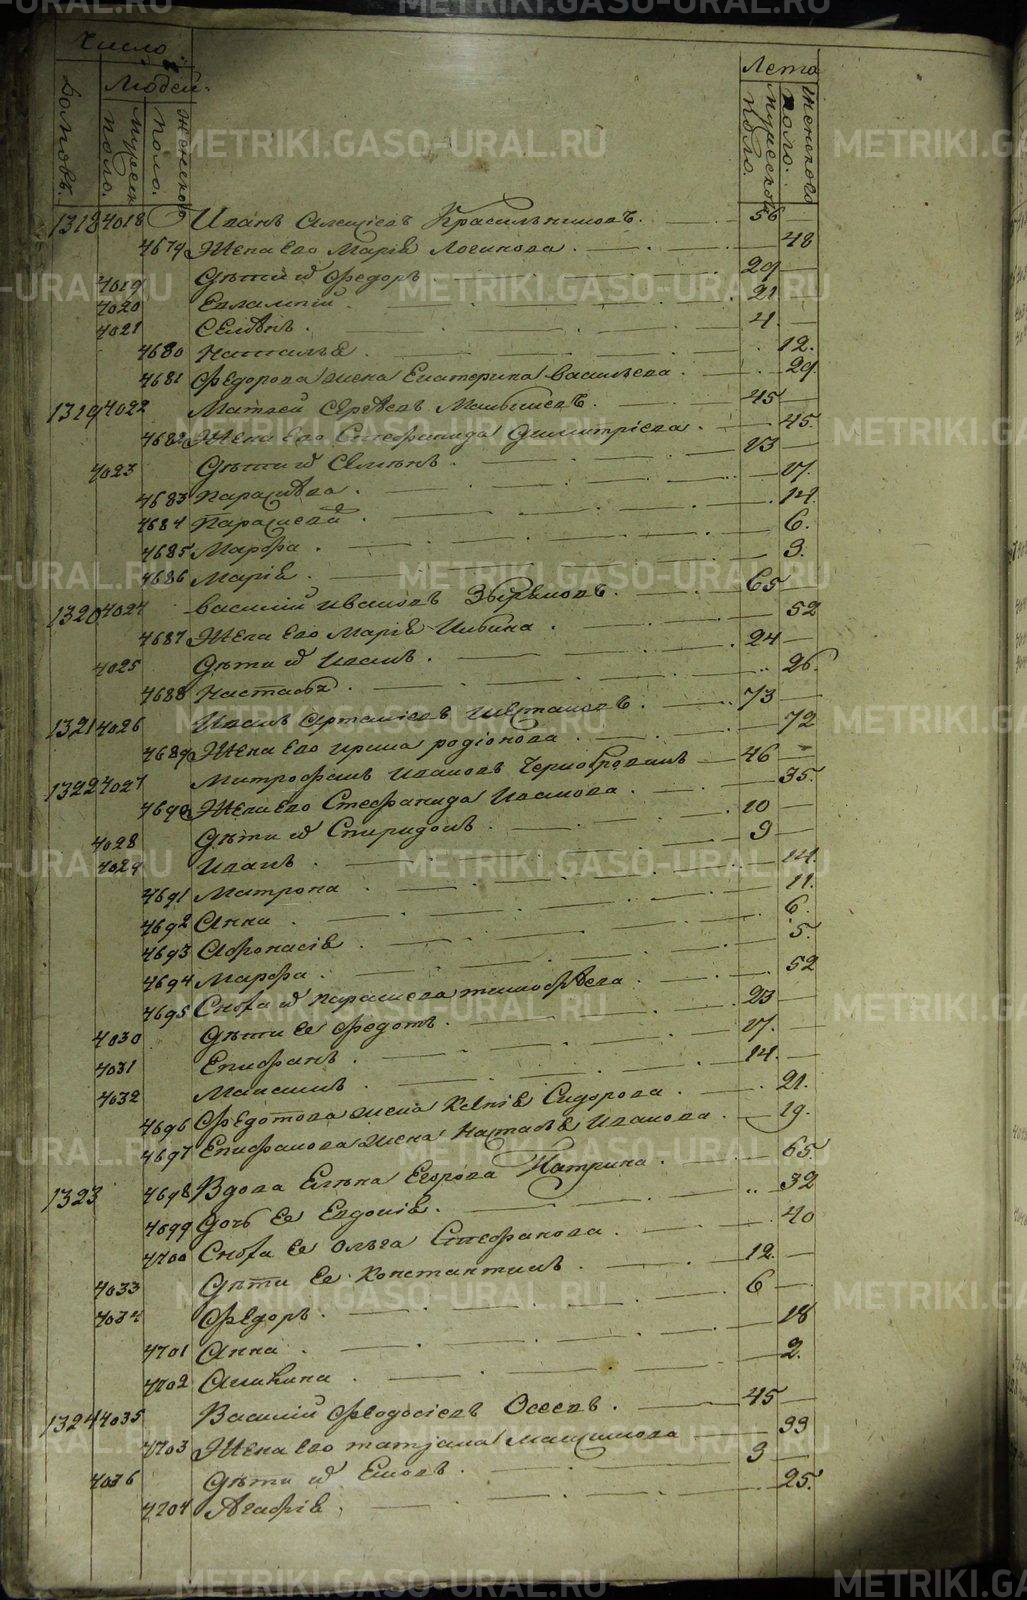 Число
Домовъ. Людей. Мужеск пола. женского пола. Лета Мужеского поло. женского поло.
1318 4018 Иванъ Алексѣевъ Красильниковъ. 56
4679 Жена Его Марія Логинова. 48
4019 Дѣти и Федоръ 29
4020 Евлампій. 21
4021 Семенъ. 4.
4680 Наталья. 12.
4681 Федорова жена Екатерина Васильева. 29.
1319 4022 Матвей Сергѣевъ 45
4682 Жена Его Стефанида Димитріева. 45.
4023 Дѣти и Семенъ. 13
4683 Парасковья. 17.
4684 Параскева. 14.
4685 Марфа. 6.
4686 Марія. 3.
1320 4024 Василій Ивановъ Зыряновъ. 65
4687 Жена Его Марія Ильина. 52
4025 Дѣти и Иванъ. 24
4688 Настасья. 26.
1321 4026 Иванъ 73
4689 Жена Его Ирина Родіонова. 72
1322 4027 Митрофанъ Ивановъ 46
4690 Жена Его Стефанида Иванова. 35.
4028 Дѣти и Спиридонъ. 10
4029 Иванъ. 9
4691 Матрона. 14.
4692 Анна. 11.
4693 Афонасія. 6.
4694 Марфа. 5.
4695 Сноха и Параскева Тимофѣева. 52
4030 Дѣти Ее Федотъ. 23
4031 Епифанъ. 17.
4032 Максимъ. 14.
4696 Федотова жена Ксенія Сидорова. 21.
4697 Епифанова жена Настасья Иванова. 19.
1323 4698 Вдова Елена Егорова 65.
4699 Дочь Ее Евдокія. 32
4700 Сноха Ее Ольга Стефанова. 40
4033 Дѣти Ее Константинъ. 12.
4034 Федоръ. 6
4701 Анна. 18
4702 Акилина. 2.
1324 4035 Василій Феодосіевъ Осеевъ. 45
4703 Жена Его татьяна Максимова 33
4036 Дѣти и 3
4704 Агафія. 25.
METRIKI.GASO-URAL.RU